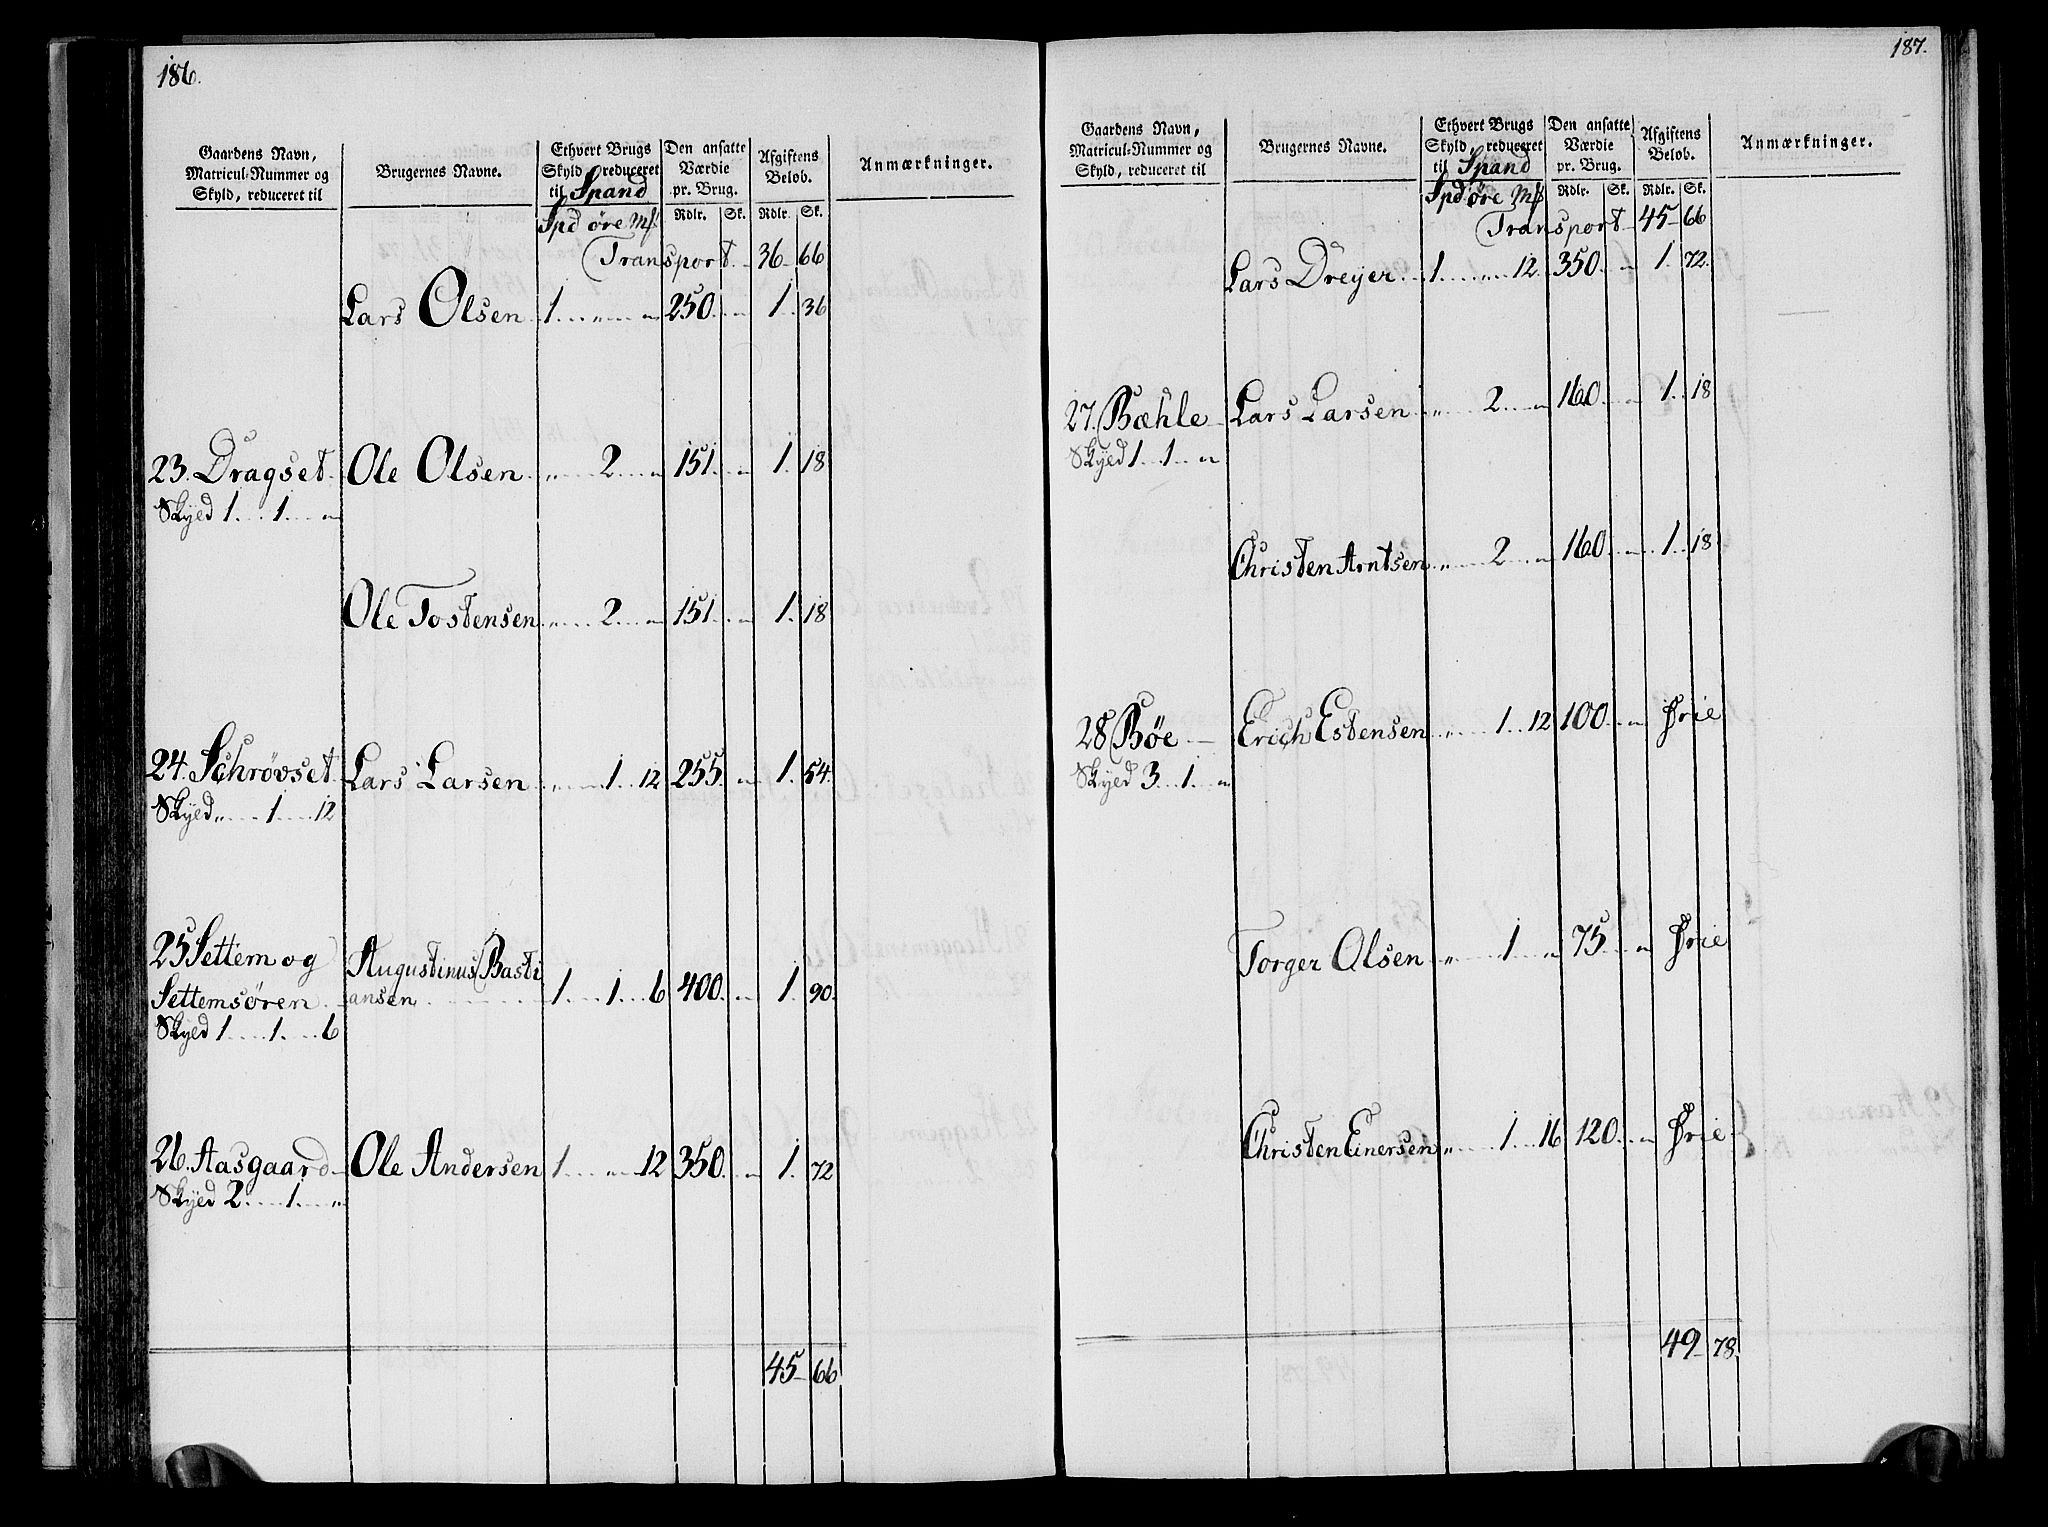 186.
Gaardens Navn, Matricul-Nummer og Skyld, reduceret til | Brugernes Navne. | Ethvert Brugs Skyld reduceret til Spand | Den ansatte Værdie pr. Brug. | Afgiftens Beløb. | Anmærkninger.
Spd øre Mß | Rdlr. | Sk. | Rdlr. | Sk.
Transport 36 66
Lars Olsen 1 „ „ 250 „ 1 36
23. Dragset Ole Olsen „ 2 „ 151 „ 1 18
Skyed 1 1 „
Ole Tostensen „ 2 „ 151 „ 1 18
24. Schrøvset Lars Larsen „ 1 12 255 „ 1 54
Skyed „ 1 12
25 Settem og Augustinus Basti
Settemsören ansen 1 1 6 400 „ 1 90
Skyed 1 1 6
26. Aasgaard Ole Andersen 1 „ 12 350 „ 1 72
Skyed 2 1 „
45 66
187.
Gaardens Navn, Matricul-Nummer og Skyld, reduceret til | Brugernes Navne. | Ethvert Brugs Skyld reduceret til Spand | Den ansatte Værdie pr. Brug. | Afgiftens Beløb. | Anmærkninger.
Spd øre Mß | Rdlr. | Sk. | Rdlr. | Sk.
Transport 45 66
Lars Dreyer 1 „ 12 350 „ 1 72
27. Bæhle Lars Larsen „ 2 „ 160 „ 1 18
Skyed 1 1 „
Christen Arntsen „ 2 „ 160 „ 1 18
28 Bøe Erich Estensen „ 1 12 100 „ Frie
Skyed 3 1 „
Torger Olsen „ 1 „ 75 „ Frie
Christen Einersen „ 1 16 120 „ Frie
49 78